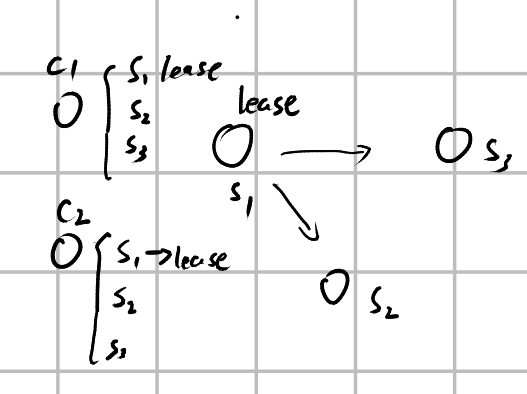 C1
S1 lease
S2
S3
lease
S1
S3
S2
C2
S1 → lease
S2
S3